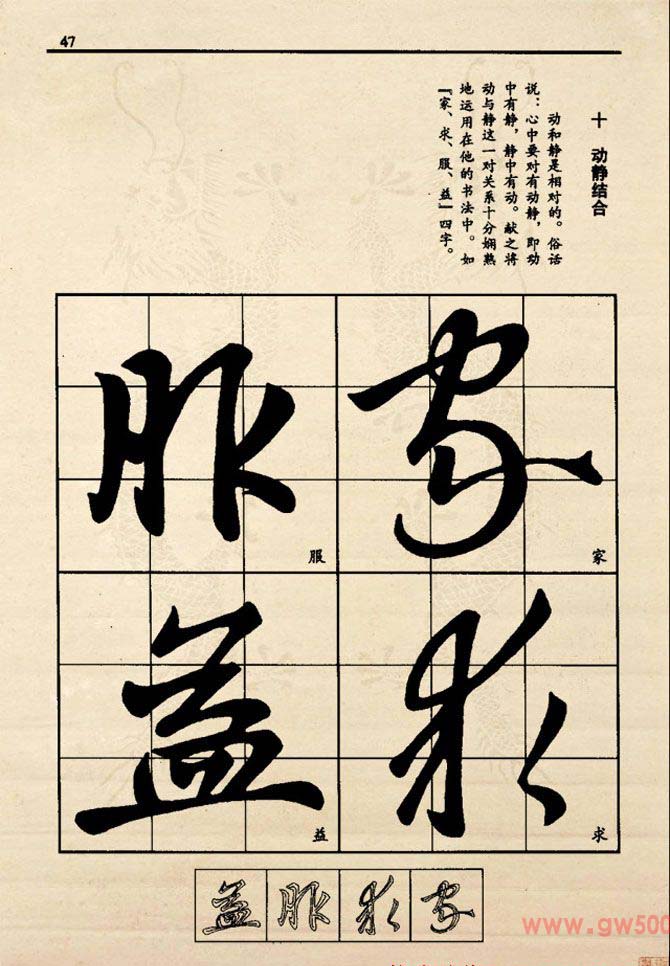 47
十 动静结合
动和静是相对的。俗话
说：心中要对有动静，即动
中有静，静中有动。献之将
动与静这一对关系十分娴熟
地运用在他的书法中。如
『家、求、服、益』四字。
家
家
求
求
服
服
益
益
益服求家
www.gw500